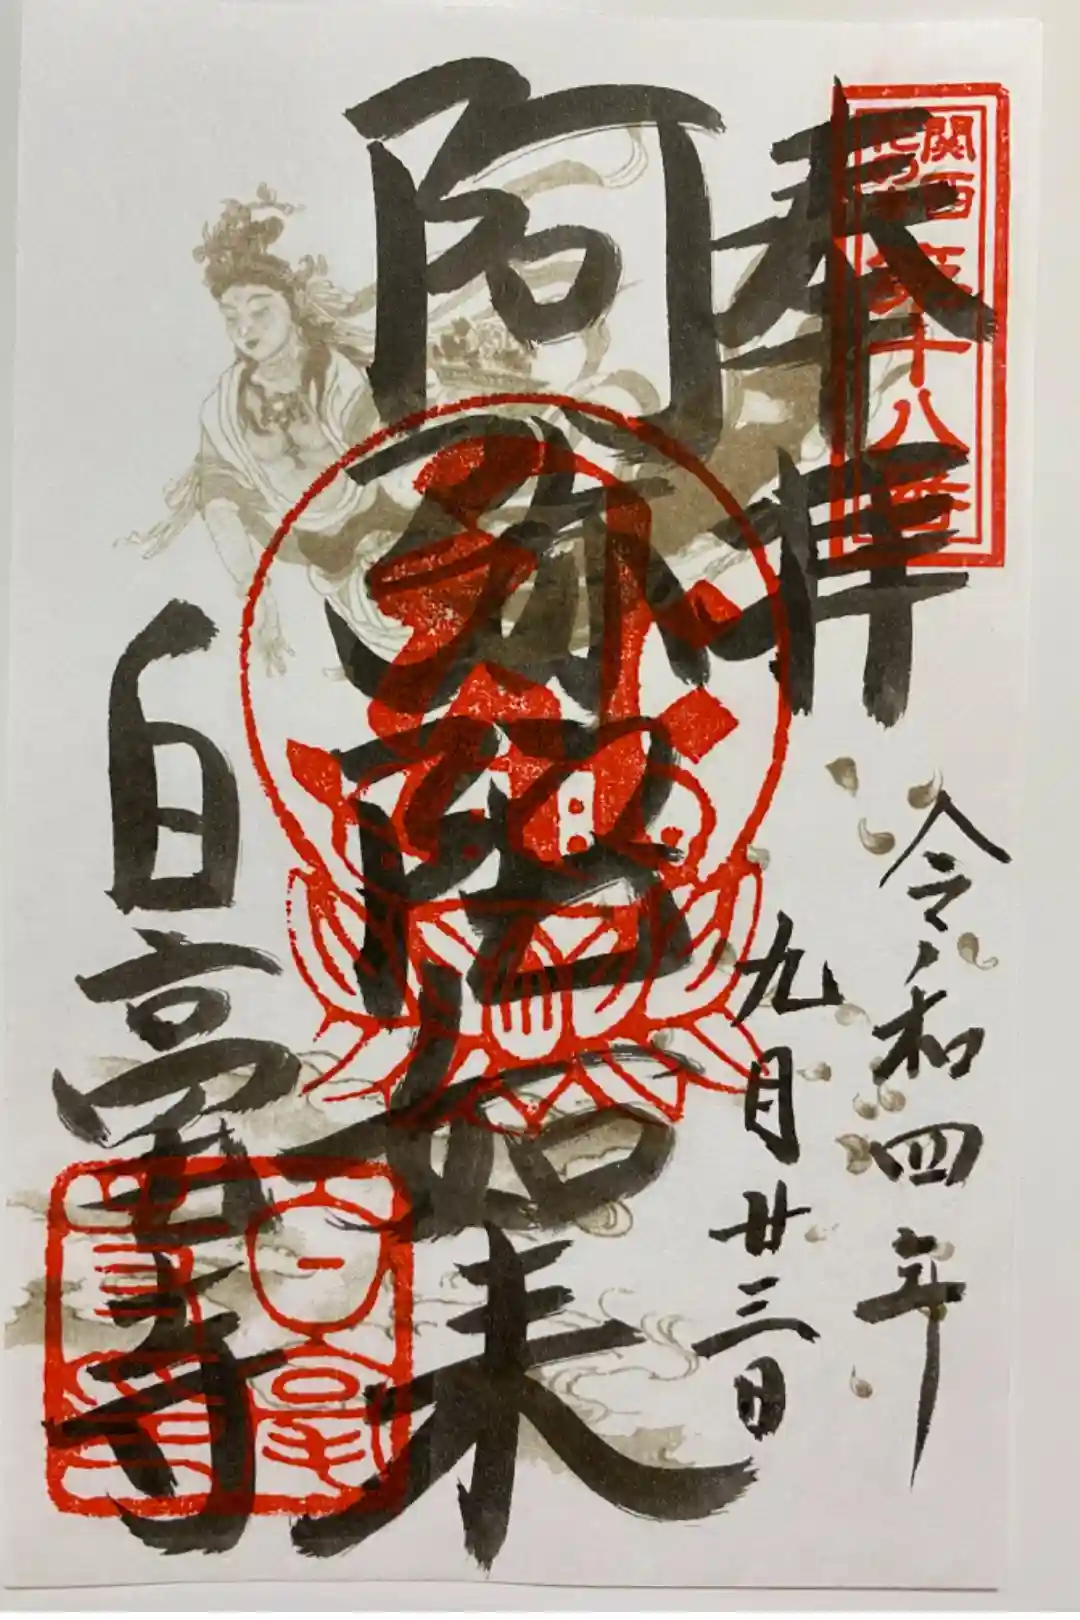 関西
花の寺
第十八番
奉拝
令和四年
九月廿三日
阿弥陀如来
白毫寺